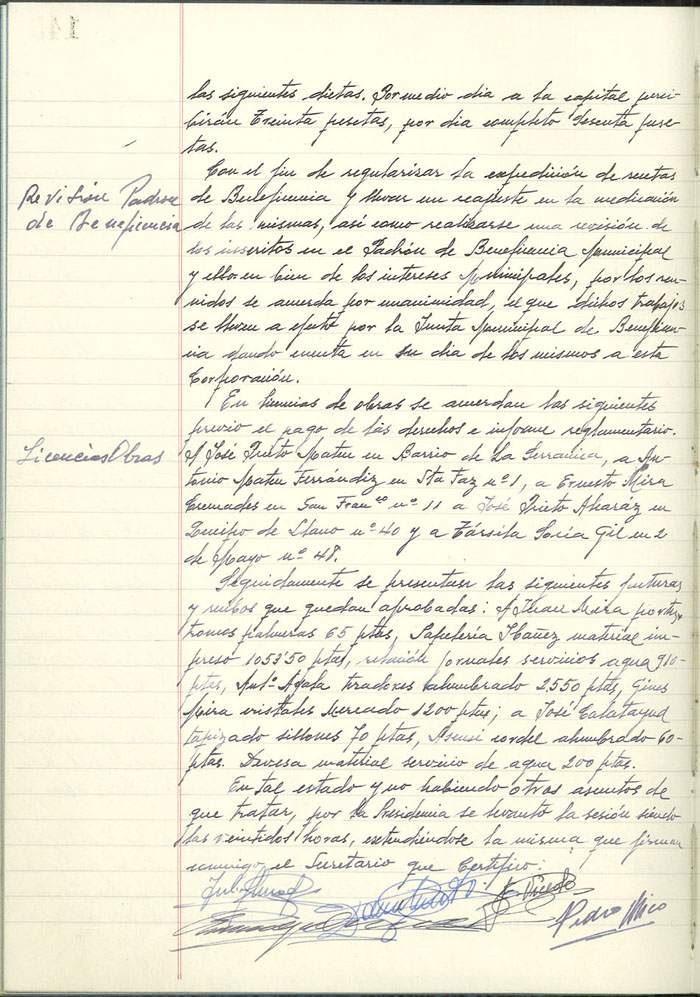 las siguientes dietas. Por medio dia a la capital perci-
birán Treinta pesetas, por dia completo Sesenta pese-
tas.
Con el fin de regularizar la expedición de recetas
Revisión Padron
de Beneficencia y llevar un reajuste en la medicación
de Beneficencia
de las mismas, así como realizarse una revisión de
los inscritos en el Padrón de Beneficencia Municipal
y ello en bien de los intereses Municipales, por los reu-
nidos se acuerda por unanimidad, el que dichos trabajos
se lleven a efecto por la Junta Municipal de Beneficen-
cia dando cuenta en su dia de los mismos a esta
Corporación.
En licencias de obras se acuerdan las siguientes
previo el pago de los derechos e informe reglamentario.
Licencias Obras
A José Prieto Mateu en Barrio de La Serranica, a An-
tonio Mateu Ferrándiz en Sta Faz nº 1, a Ernesto Mira
Cremades en San Franco nº 11 a José Prieto Alcaráz en
de Llano nº 40 y a Társila Soria Gil en 2
de Mayo nº 48.
Seguidamente se presentan las siguientes facturas
y recibos que quedan aprobadas: A Juan Mira por
palmeras 65 ptas, Papelería Ibáñez material im-
preso 1053'50 ptas, relación jornales servicios agua 910
ptas, Antº Ayala tiradores alumbrado 2,550 ptas, Gines
Mira cristales Mercado 1200 ptas; a José Calatayud
tapizado sillones 70 ptas, Asensi cordel alumbrado 60
ptas. Davesa material servicio de agua 200 ptas.
En tal estado y no habiendo otros asuntos de
que tratar, por la Presidencia se levantó la sesión siendo
las veintidos horas, extendiéndose la misma que firman
conmigo, el Secretario que Certifico:
Pedro Mico